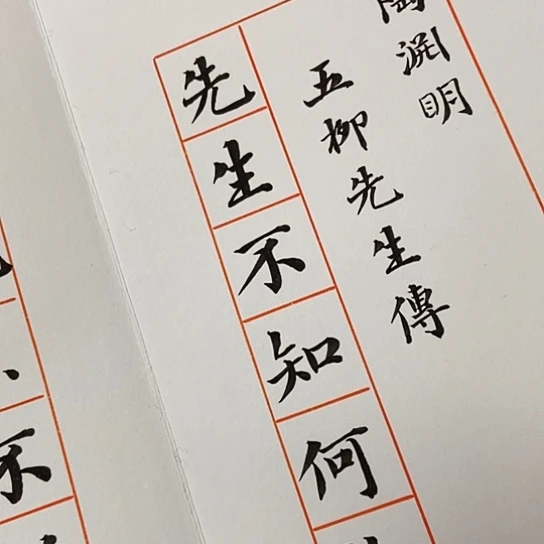 陶淵明
五柳先生傳
先生不知何
不